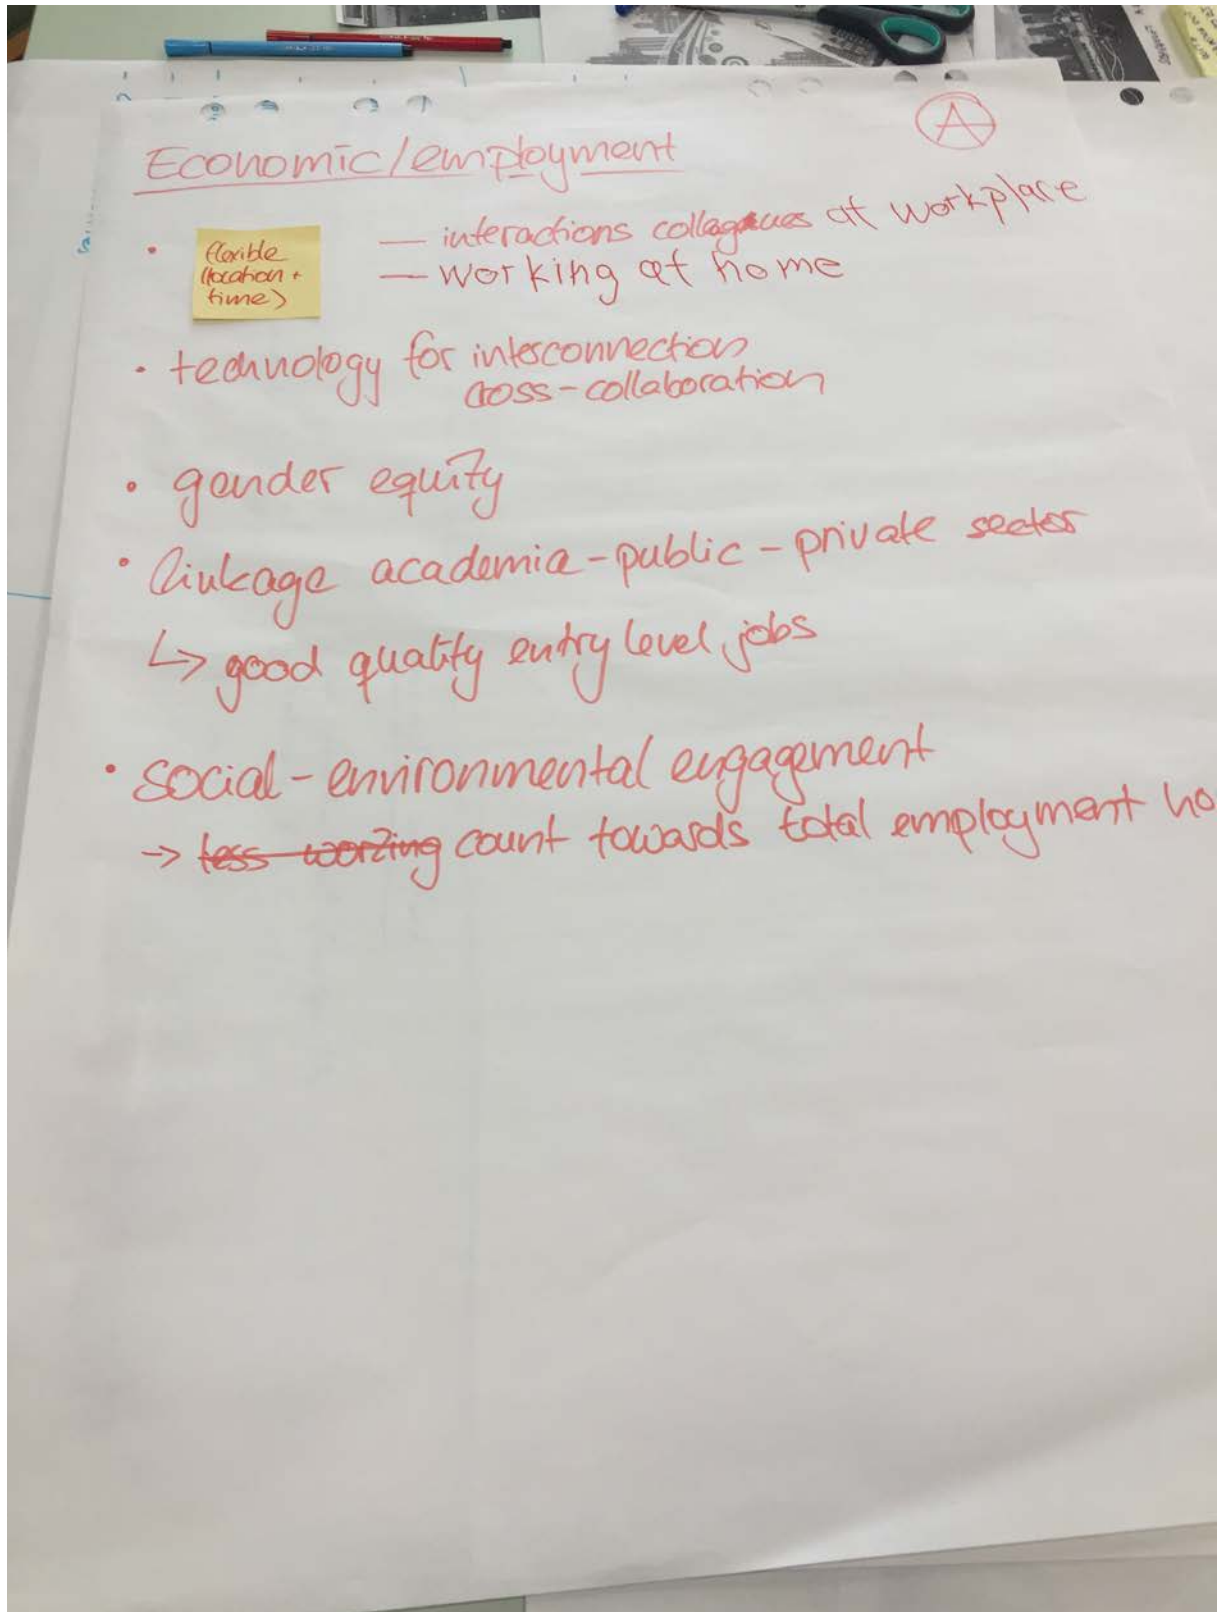 A
Economic/employment
• flexible
(location +
time)
— interactions collagues at workplace
— working at home
• technology for interconnection
cross-collaboration
• gender equity
• linkage academia-public-private sector
↳ good quality entry level jobs
• social-environmental engagement
→ less working count towards total employment ho